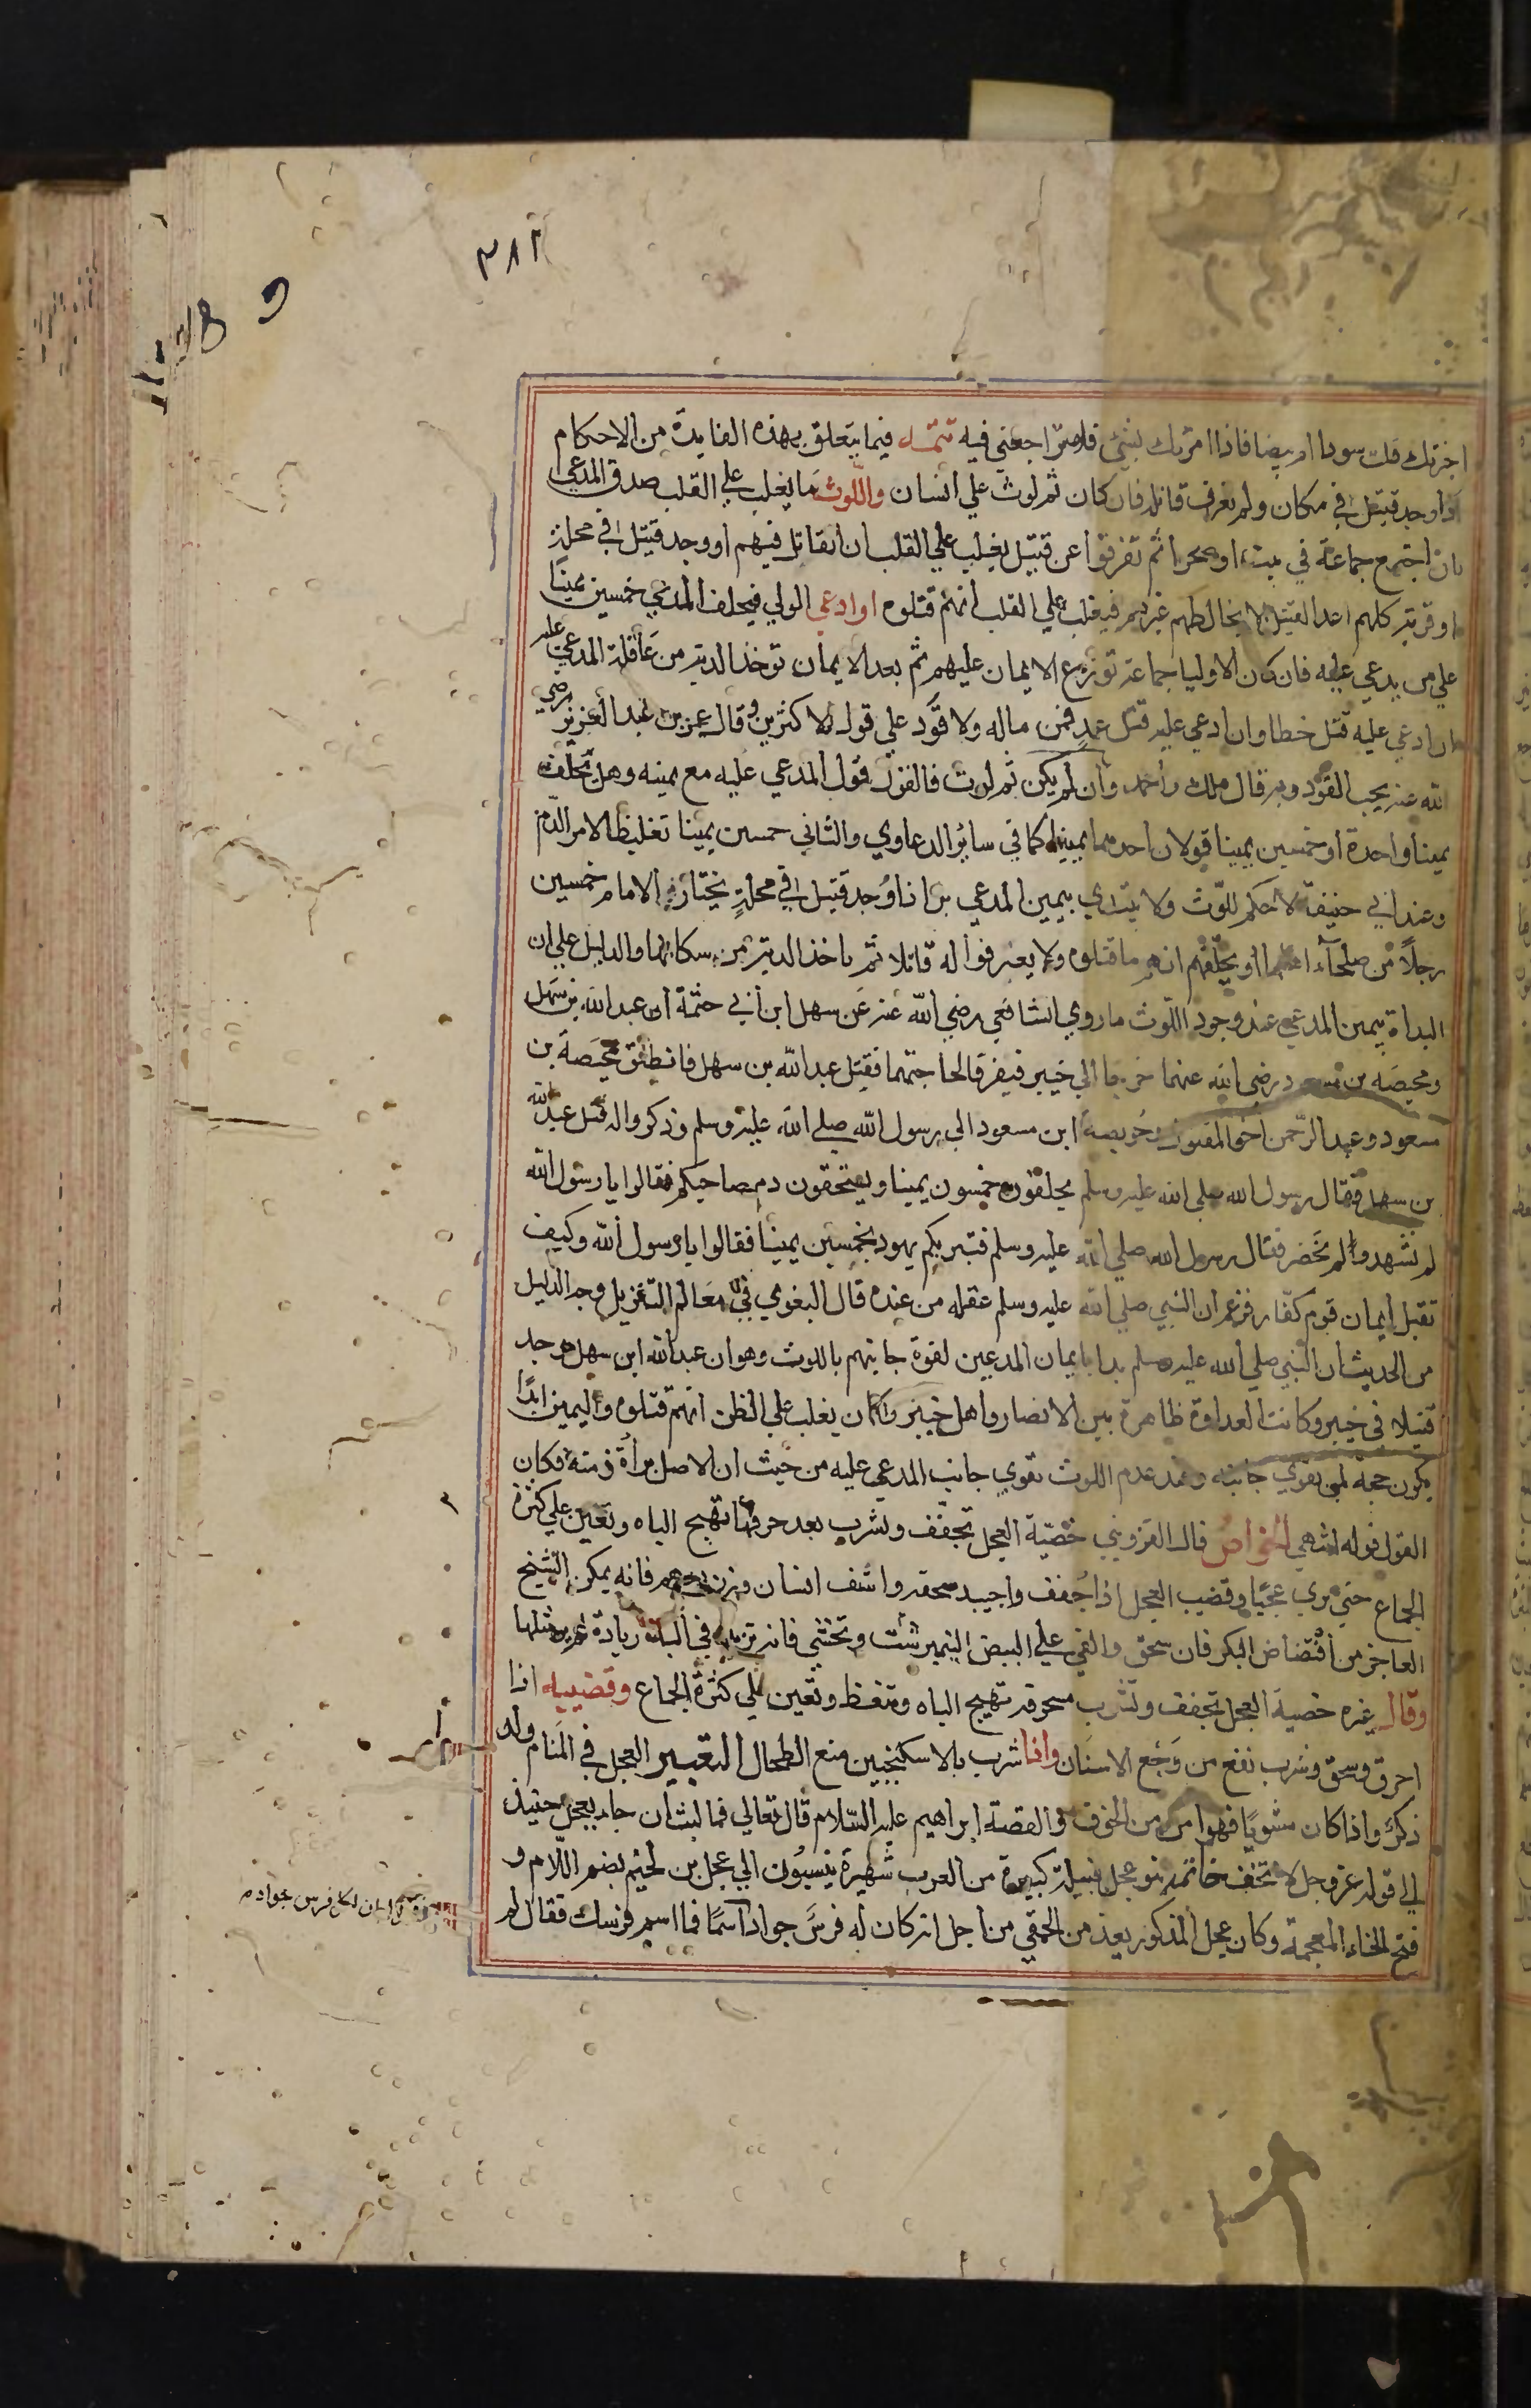 ٣٨٢
اخبرتك قلت سودا ام بيضا فاذا امرتك بشئ فلا تراجعني فيه تتمــه فيما يتعلق بهذه الفايدة من الاحكام
اذا وجد قتيل في مكان ولم يعرف قاتله فان كان ثم لوث علي انسان واللوث ما يغلب علي القلب صدق المدعي
بان اجتمع جماعة في بيت او صحرا ثم تفرقوا عن قتيل يغلب علي القلب ان القاتل فيهم او وجد قتيل في محلة
او قرية كلهم اعدا القتيل لا يخالطهم غيرهم فيغلب علي القلب انهم قتلوه او ادعي الولي فيحلف المدعي خمسين يمينا
علي من يدعي عليه فان كان الاوليا جماعة توزع الايمان عليهم ثم بعد الايمان توخذ الدية من عاقلة المدعي عليه
ان ادعي عليه قتل خطا وان ادعي عليه قتل عمد فمن ماله ولا قود علي قول الاكثرين وقال عمر بن عبد العزيز رضي
الله عنه يجب القود وبه قال ملك واحمد وان لم يكن ثم لوث فالقول قول المدعي عليه مع يمينه وهل يحلف
يمينا واحدة او خمسين يمينا قولان احدهما يمينا كما في سائر الدعاوي والثاني خمسين يمينا تغليظا لامر الدم
وعند ابي حنيفة لا حكم للوث ولا يبتدي بيمين المدعي بل اذا وجد قتيل في محلة يختار الامام خمسين
رجلا من صلحآء اهلها ويحلفهم انهم ما قتلوه ولا يعرفوا له قاتلا ثم ياخذ الدية من سكانها والدليل علي ان
البداة بيمين المدعي عند وجود اللوث ما روي الشافعي رضي الله عنه عن سهل ابن ابي حثمة ان عبد الله بن سهل
ومحيصه بن مسعود رضي الله عنهما خرجا الي خيبر فيفرقا لحاجتهما فقتل عبد الله بن سهل فانطلق محيصه بن
مسعود وعبد الرحمن اخو المقتول وحويصة ابن مسعود الي رسول الله صلي الله عليه وسلم وذكروا له قتل عبد الله
بن سهل فقال رسول الله صلي الله عليه وسلم يحلفون خمسون يمينا ويستحقون دم صاحبكم فقالوا يا رسول الله
لم نشهد ولم نحضر فقال رسول الله صلي الله عليه وسلم فتبريكم يهود بخمسين يمينا فقالوا يا رسول الله وكيف
تقبل ايمان قوم كفار فزعم ان النبي صلي الله عليه وسلم عقله من عنده قال البغوي في معالم التنزيل وجه الدليل
من الحديث ان النبي صلي الله عليه وسلم بدا بايمان المدعين لقوة جانبهم باللوث وهو ان عبد الله ابن سهل وجد
قتيلا في خيبر وكانت العداوة ظاهرة بين الانصار واهل خيبر وكان يغلب علي الظن انهم قتلوه واليمين ابدا
يكون حجة لمن يقوي جانبه وعند عدم اللوث تقوي جانب المدعي عليه من حيث ان الاصل براة ذمته فكان
القول قوله انتهي الخواص قال القزويني خصية العجل تجفف وتشرب بعد حرقها تهيج الباه وتعين علي كثرة
الجماع حتي يري عجبا وقضيب العجل اذا جفف واجيد سحقه واستف انسان وزن درهم فانه يمكن الشيخ
العاجز من افتضاض البكر فان سحق والقي علي البيض النيمرشت وتحسي فانه تزيد في الباه زيادة لا مثلها
وقال غيره خصية العجل تجفف وتشرب مسحوقه تهيج الباه وتنعظ وتعين علي كثرة الجماع وقضيبه اذا
احرق وسحق وشرب نفع من وجع الاسنان واذا شرب بالاسكنجبين منع الطحال التعبير العجل في المنام ولد
ذكر واذا كان مشويا فهو امن من الخوف والقصة ابراهيم عليه السلام قال تعالي فما لبث ان جاء بعجل حنيذ
الي قوله عز وجل لا تخف خاتمه بنو عجل قبيلة كبيرة من العرب شهيرة ينسبون الي عجل بن لخيم بضم اللام و
فتح الخاء المعجمة وكان عجل المذكور يعد من الحمقي من اجل انه كان له فرس جوادا سما فما اسم فرسك فقال لم